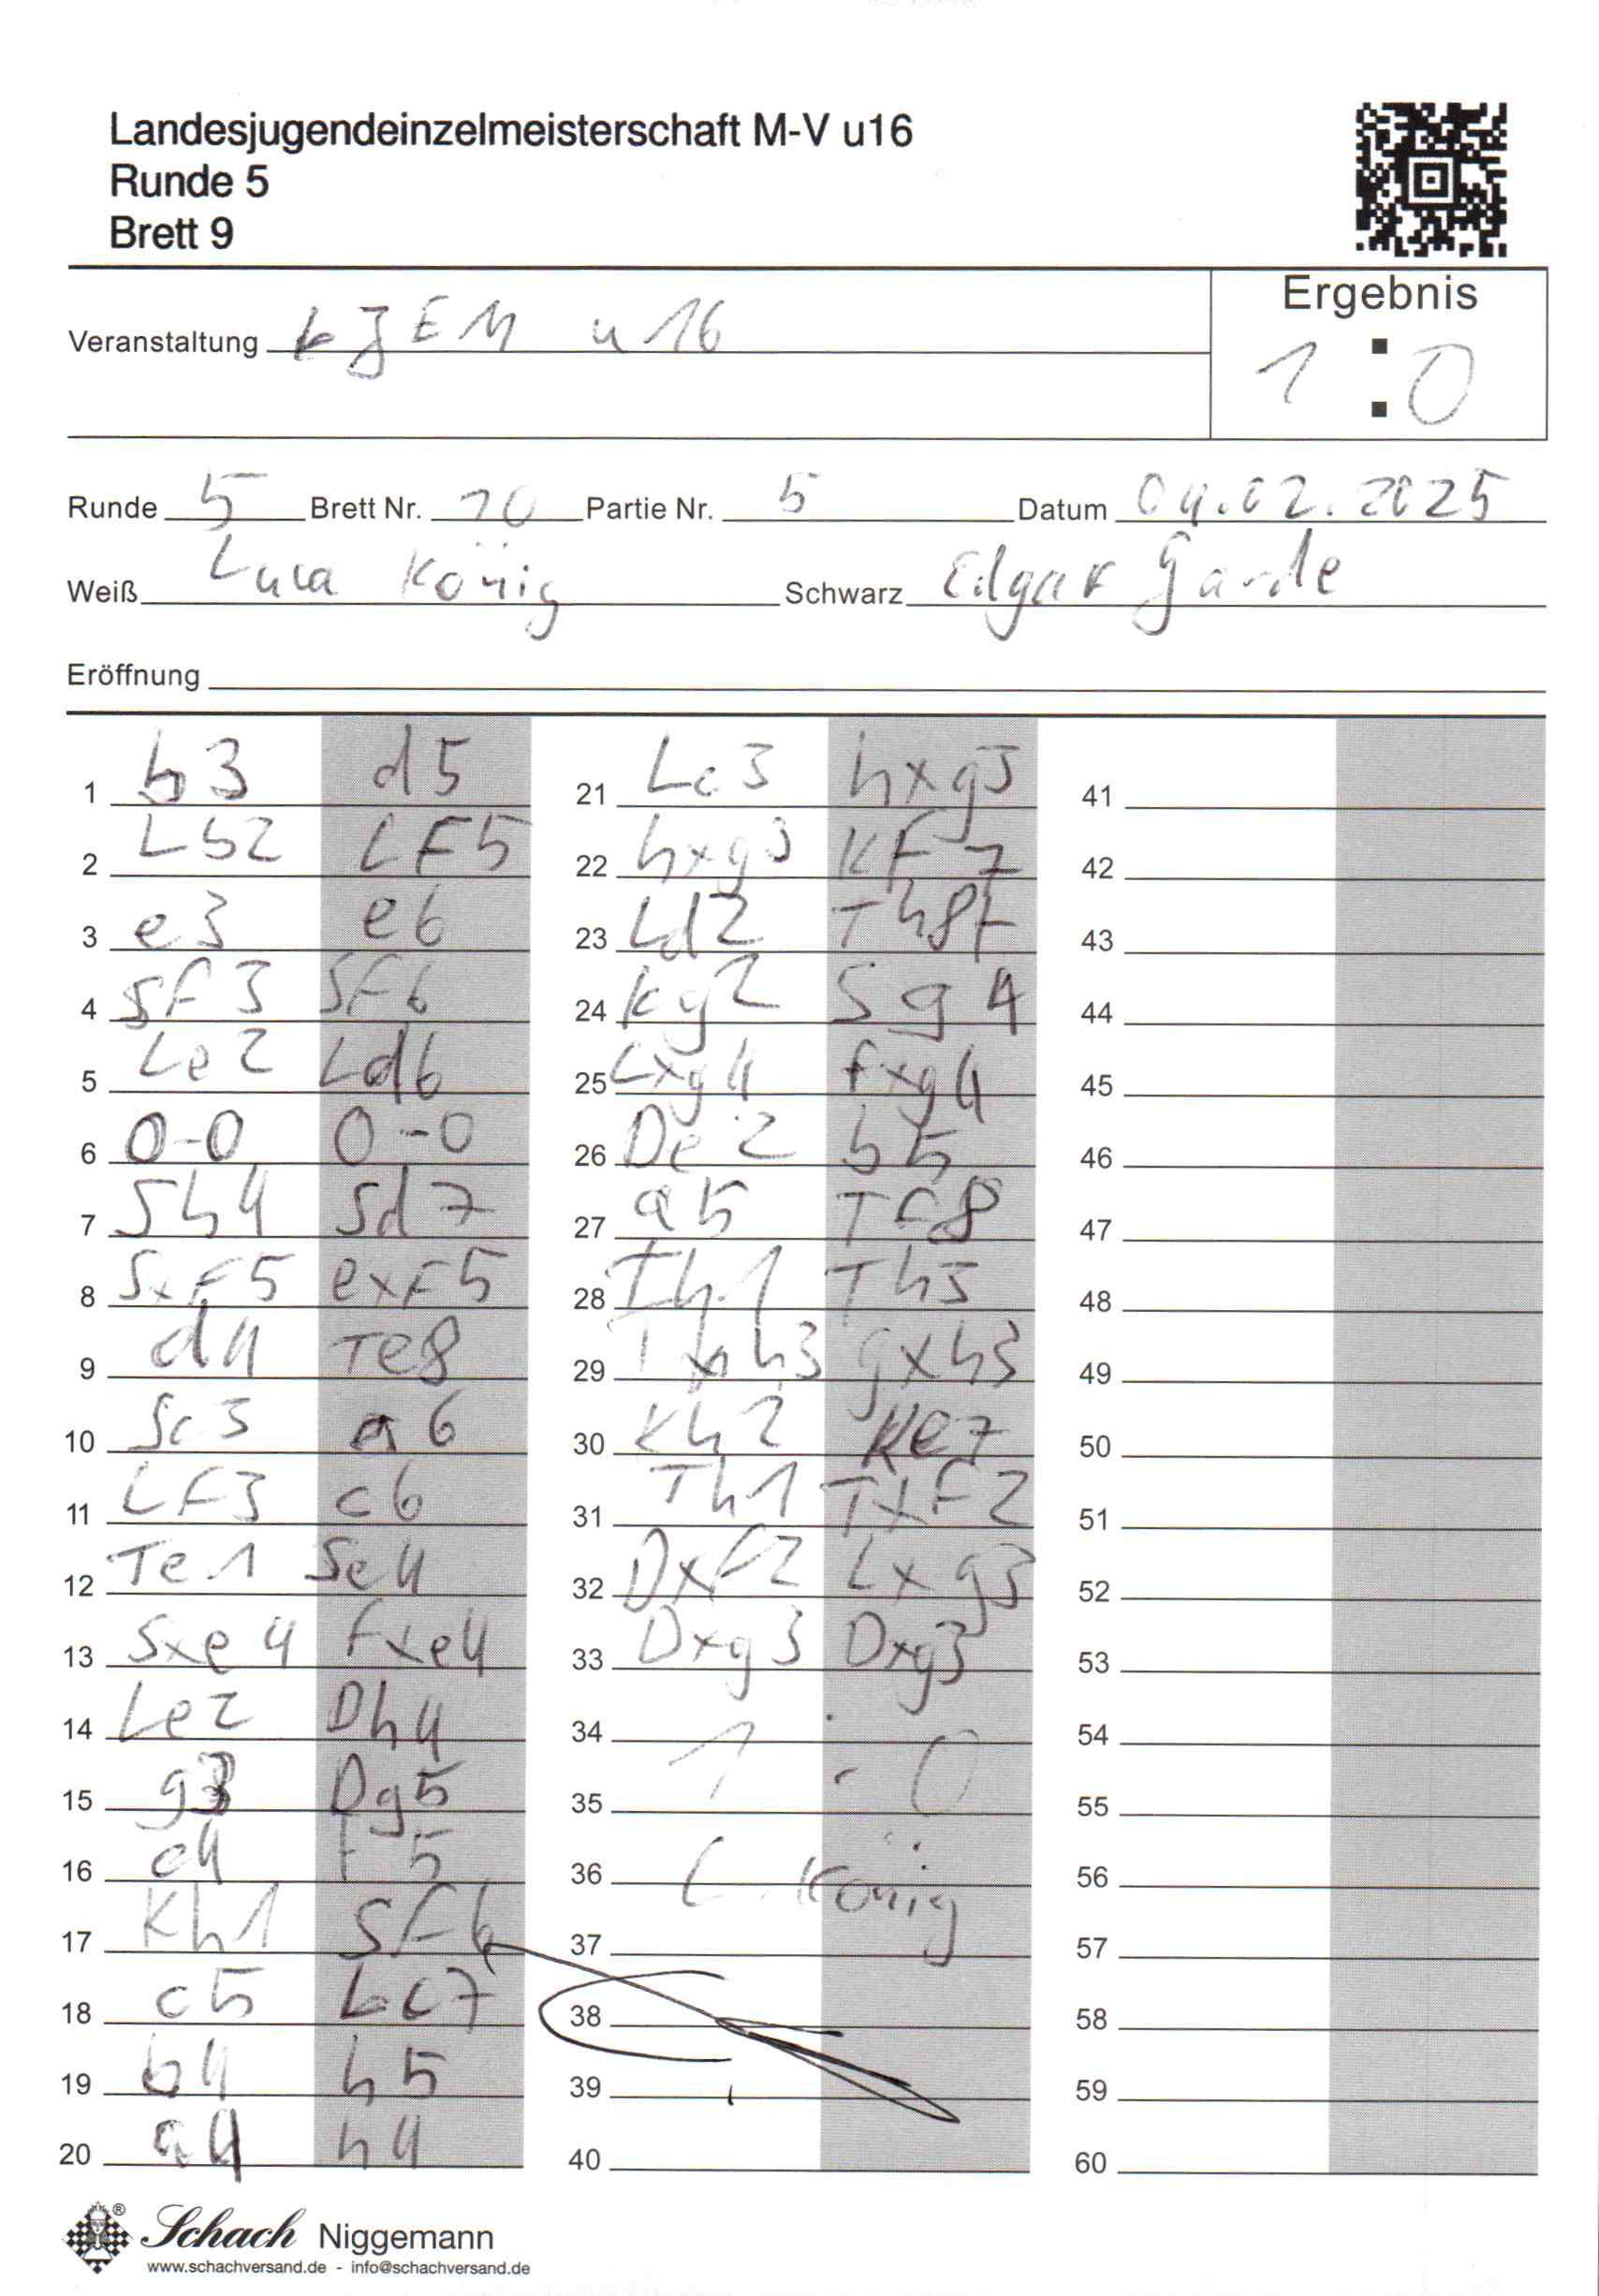 Landesjugendeinzelmeisterschaft M-V u16
Runde 5
Brett 9
Ergebnis
Veranstaltung LJEM u16
1 : 0
Runde 5 Brett Nr. 10 Partie Nr. 5 Datum 04.02.2025
Weiß Luca König Schwarz Edgar Garde
Eröffnung
1 b3 d5
2 Lb2 LF5
3 e3 e6
4 SF3 SF6
5 Le2 Ld6
6 0-0 0-0
7 Sh4 Sd7
8 SxF5 exF5
9 d4 Te8
10 Sc3 a6
11 LF3 c6
12 Te1 Se4
13 Sxe4 Fxe4
14 Le2 Dh4
15 g3 Dg5
16 c4 F5
17 Kh1 SF6
18 c5 Lc7
19 b4 h5
20 a4 h4
21 Lc3 hxg3
22 hxg3 KF7
23 Ld2 Th8+
24 Kg2 Sg4
25 Lxg4 fxg4
26 De2 b5
27 a5 TF8
28 Th1 Th3
29 Txh3 gxh3
30 Kh2 Ke7
31 Th1 TxF2
32 DxF2 Lxg3
33 Dxg3 Dxg3
34
35 1 - 0
36 L. König
37
38
39
40
41
42
43
44
45
46
47
48
49
50
51
52
53
54
55
56
57
58
59
60
Schach Niggemann
www.schachversand.de - info@schachversand.de